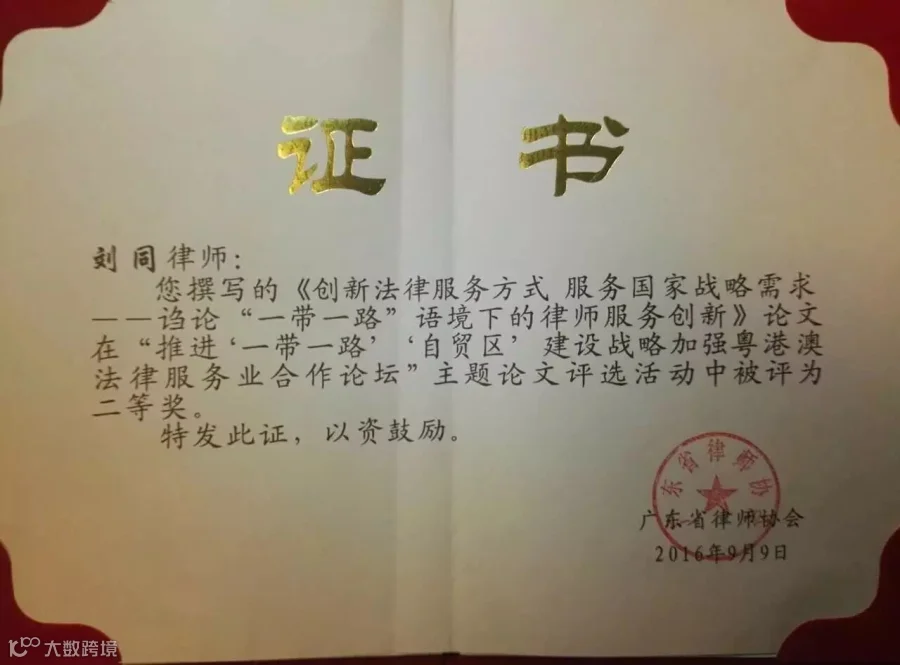 证 书
刘同律师：
您撰写的《创新法律服务方式 服务国家战略需求
——诌论“一带一路”语境下的律师服务创新》论文
在“推进‘一带一路’‘自贸区’建设战略加强粤港澳
法律服务业合作论坛”主题论文评选活动中被评为
二等奖。
特发此证，以资鼓励。
东省律师协
广东省律师协会
2016年9月9日
大数跨境